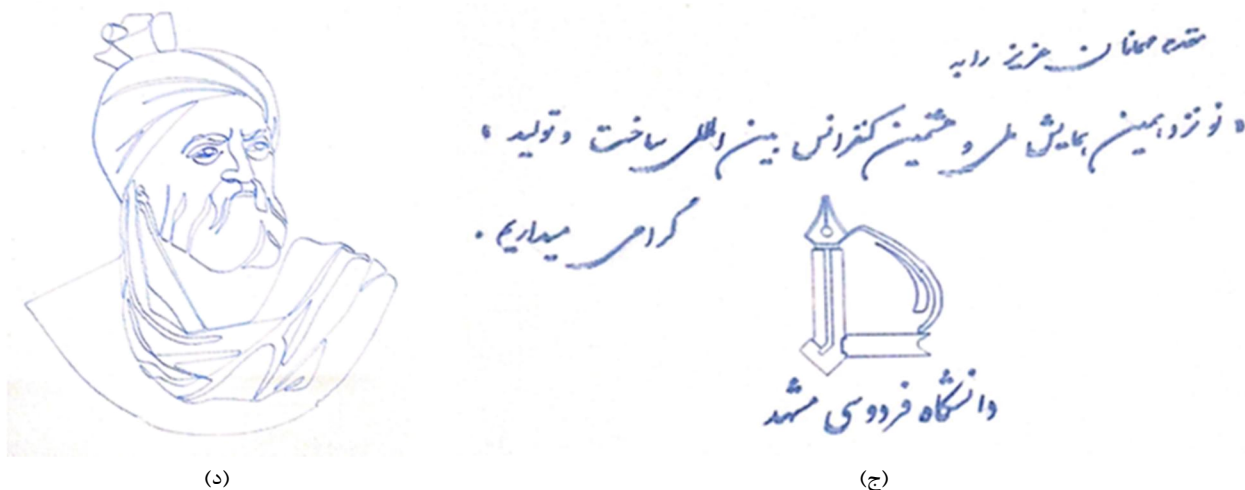 مقدم مهمانان عزیز را به
« نوزدهمین همایش ملی و هشتمین کنفرانس بین المللی ساخت و تولید »
گرامی میداریم .
دانشگاه فردوسی مشهد
(ج)
(د)